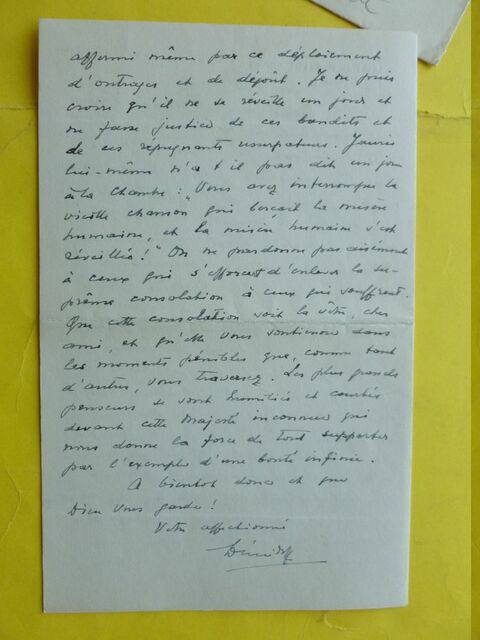 affermi même par ce déploiement
d'outrages et de dégoût. Je ne puis
croire qu'il ne se réveille un jour et
ne fasse justice de ces bandits et
de ces répugnants usurpateurs. Jaurès
lui-même n'a t il pas dit un jour
à la Chambre : "Vous avez interrompu la
vieille chanson qui berçait la misère
humaine, et la misère humaine s'est
réveillée !" On ne pardonne pas aisément
à ceux qui s'efforcent d'enlever la su-
prême consolation à ceux qui souffrent.
Que cette consolation soit la vôtre, cher
ami, et qu'elle vous soutienne dans
les moments pénibles que, comme tant
d'autres, vous traversez. Les plus grands
penseurs se sont humiliés et courbés
devant cette Majesté inconnue qui
nous donne la force de tout supporter
par l'exemple d'une bonté infinie.
A bientôt donc et que
Dieu vous garde !
Votre affectionné